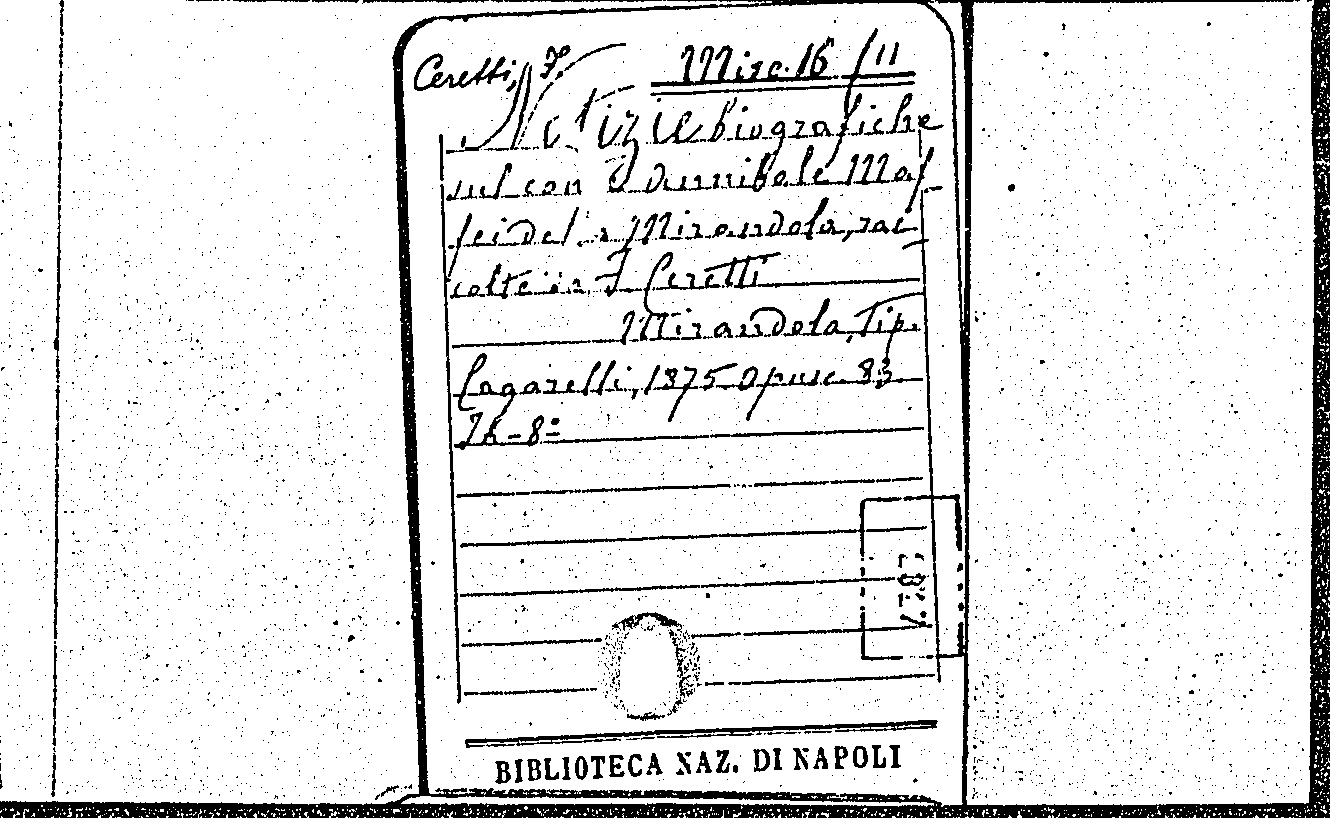 Ceretti, F. Misc. 16/11
Notizie biografiche
sul con Annibale Maf
fei della Mirandola, rac
colte da F Ceretti
Mirandola, Tip.
Cagarelli, 1875 Opusc. 83
In-8º
BIBLIOTECA NAZ. DI NAPOLI